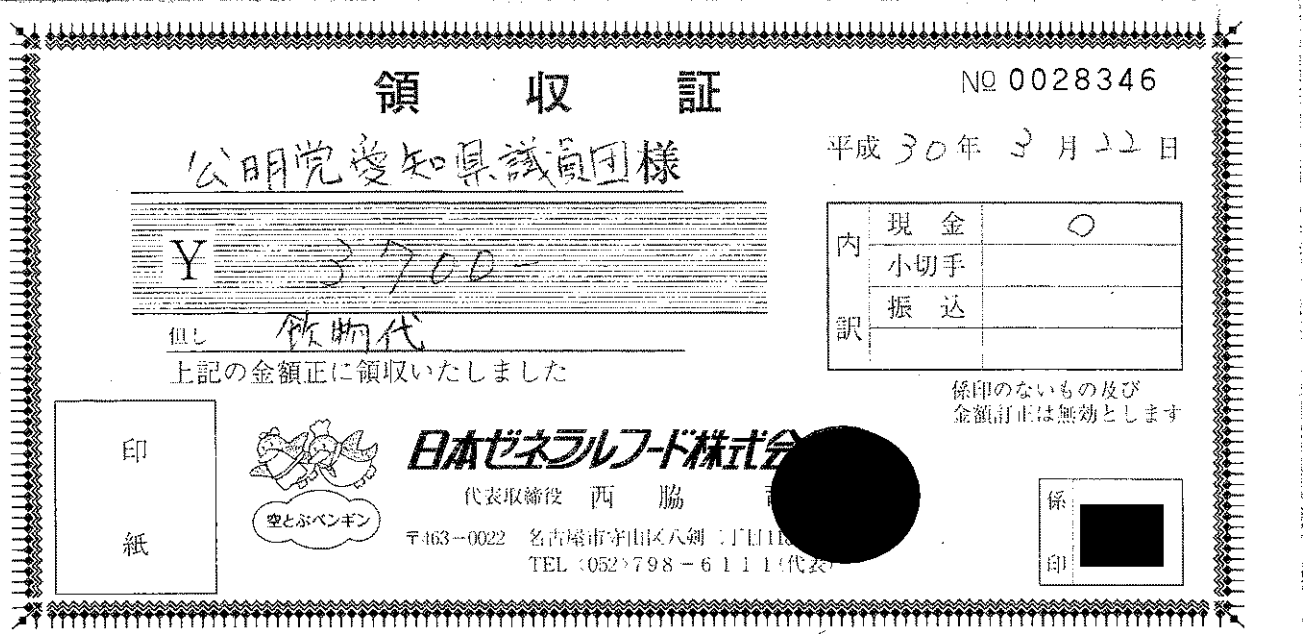 領収証
№ 0028346
公明党愛知県議員団様
平成30年3月22日
¥ 3,700-
但し 飲物代
上記の金額正に領収いたしました
内訳
現金 ○
小切手
振込
係印のないもの及び
金額訂正は無効とします
印紙
空とぶペンギン
日本ゼネラルフード株式会
代表取締役 西脇
〒463-0022 名古屋市守山区八剣二丁目
TEL〈052〉798-6111(代表)
係印